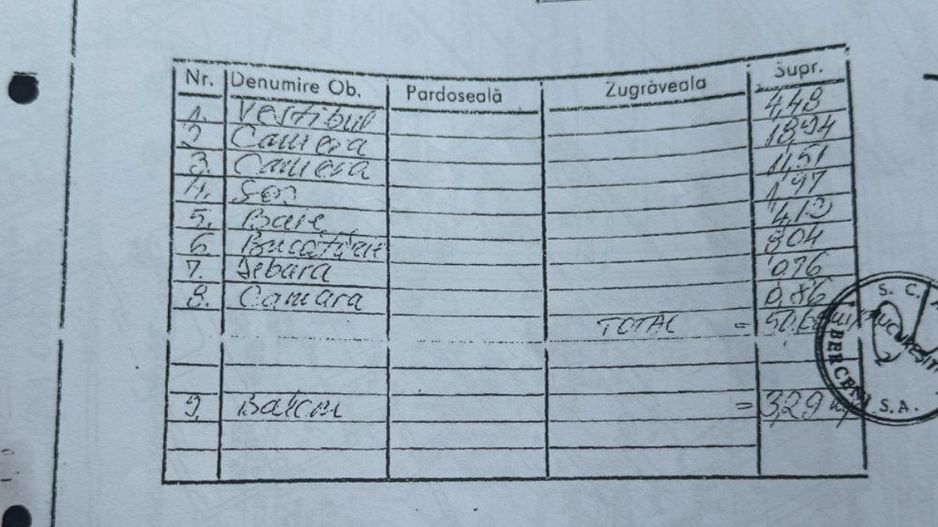 Nr. Denumire Ob. Pardoseală Zugrăveala Supr.
1. Vestibul 4,48
2 Camera 18,94
3. Camera 11,51
4. 1,97
5. Baie 4,12
6. Bucătărie 8,04
7. Debara 0,76
8. Camara 0,86
TOTAL = 50,68
9. Balcon = 3,29
S. C.
BUCUREȘTI
BERCENI S.A.